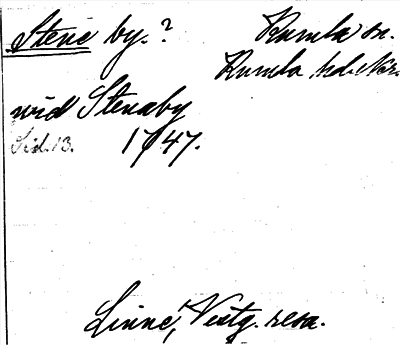 Stene by. ?
Kumla sn.
Kumla hd. När.
vid Stenaby
Sid. 13. 1747.
Linné, Västg. resa.